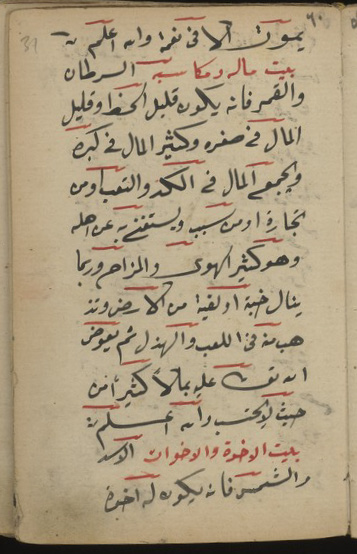 يموت الا في نعمة والله اعلم
بيت ماله ومكاسبه السرطان
والقمر فانه يكون قليل الحظ وقليل
المال في صغره وكثير المال في كبره
ويجمع المال في الكد والتعب او من
تجارة او من سبب ويستغني به عن اهله
وهو كثير الهوى والمزاح وربما
ينال خبية او لقية من الارض وتذ
هب منه في اللعب والهزل ثم يعوض
الله تعالى عليه بمالاً كثيراً من
حيث لا يحتسب والله اعلم
بيت الاخوة والاخوات الاسد
والشمس فانه يكون له اخوة